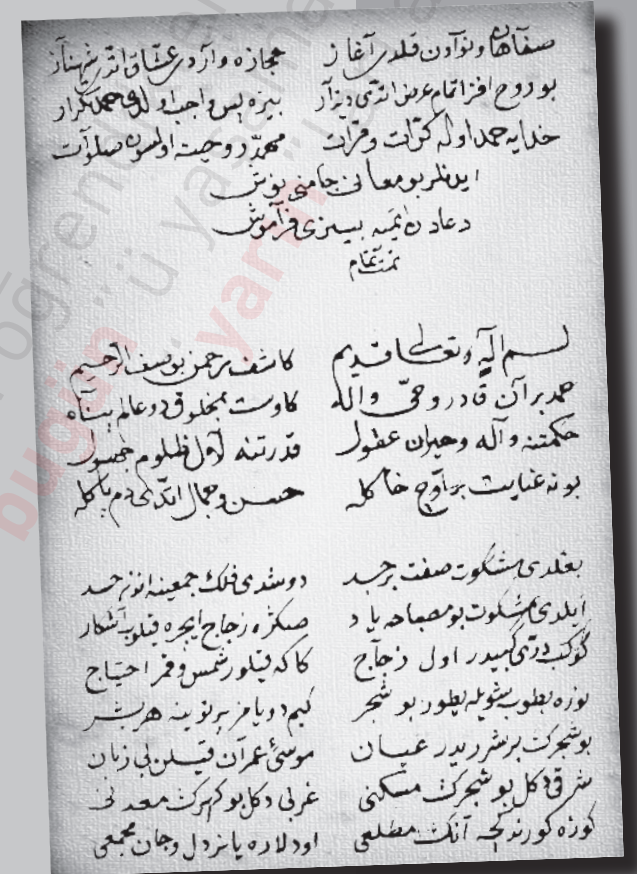 صفاهان و نوادن قلدی آغاز حجازه واردی عشاق اتدی شهناز
بو روح افزا تمام عرض اتدی دیدار بیزه پس واجب اولدی حمد تکرار
خدایه حمد اوله کرّات و مرّات محمد روحیته اولسون صلوآت
ایدنلر بو معانی جامنی نوش
دعادن ایتمیه بیزی فرآموش
تمت تمام
بسم اله و تعالی قدیم کاشف رحمن الرحیم
حمد بر آن قادر و حیّ و اله کاوست بمخلوق دو عالم پناه
حکمتنه واله و حیران عقول قدرتنه لال ظلوم جهول
بو نه عنایت بر اوج خاکله حسن و جمال اتدکی دم پاکله
بغلدی مشکوت صفت بر جسد دوشدی فلک جمعینه اندن حسد
ایلدی مشکوت بو مصباحه صکره زجاج ایچره قیلوب آشکار
کوکب درّی کبیدر اول زجاج کاکه قیلور شمس و قمر احتیاج
شویله بو شجر کیم هر بشر
بو شجرک بر شرریدر عیان موسئ عمران قیلن بی زبان
شرقی دکل بو شجرک مسکنی غربی دکل بو کهرک معدنی
کوزه کورندکجه آنک مطلعی اودلاره یانر دل و جان مجمعی
bugün
yarın